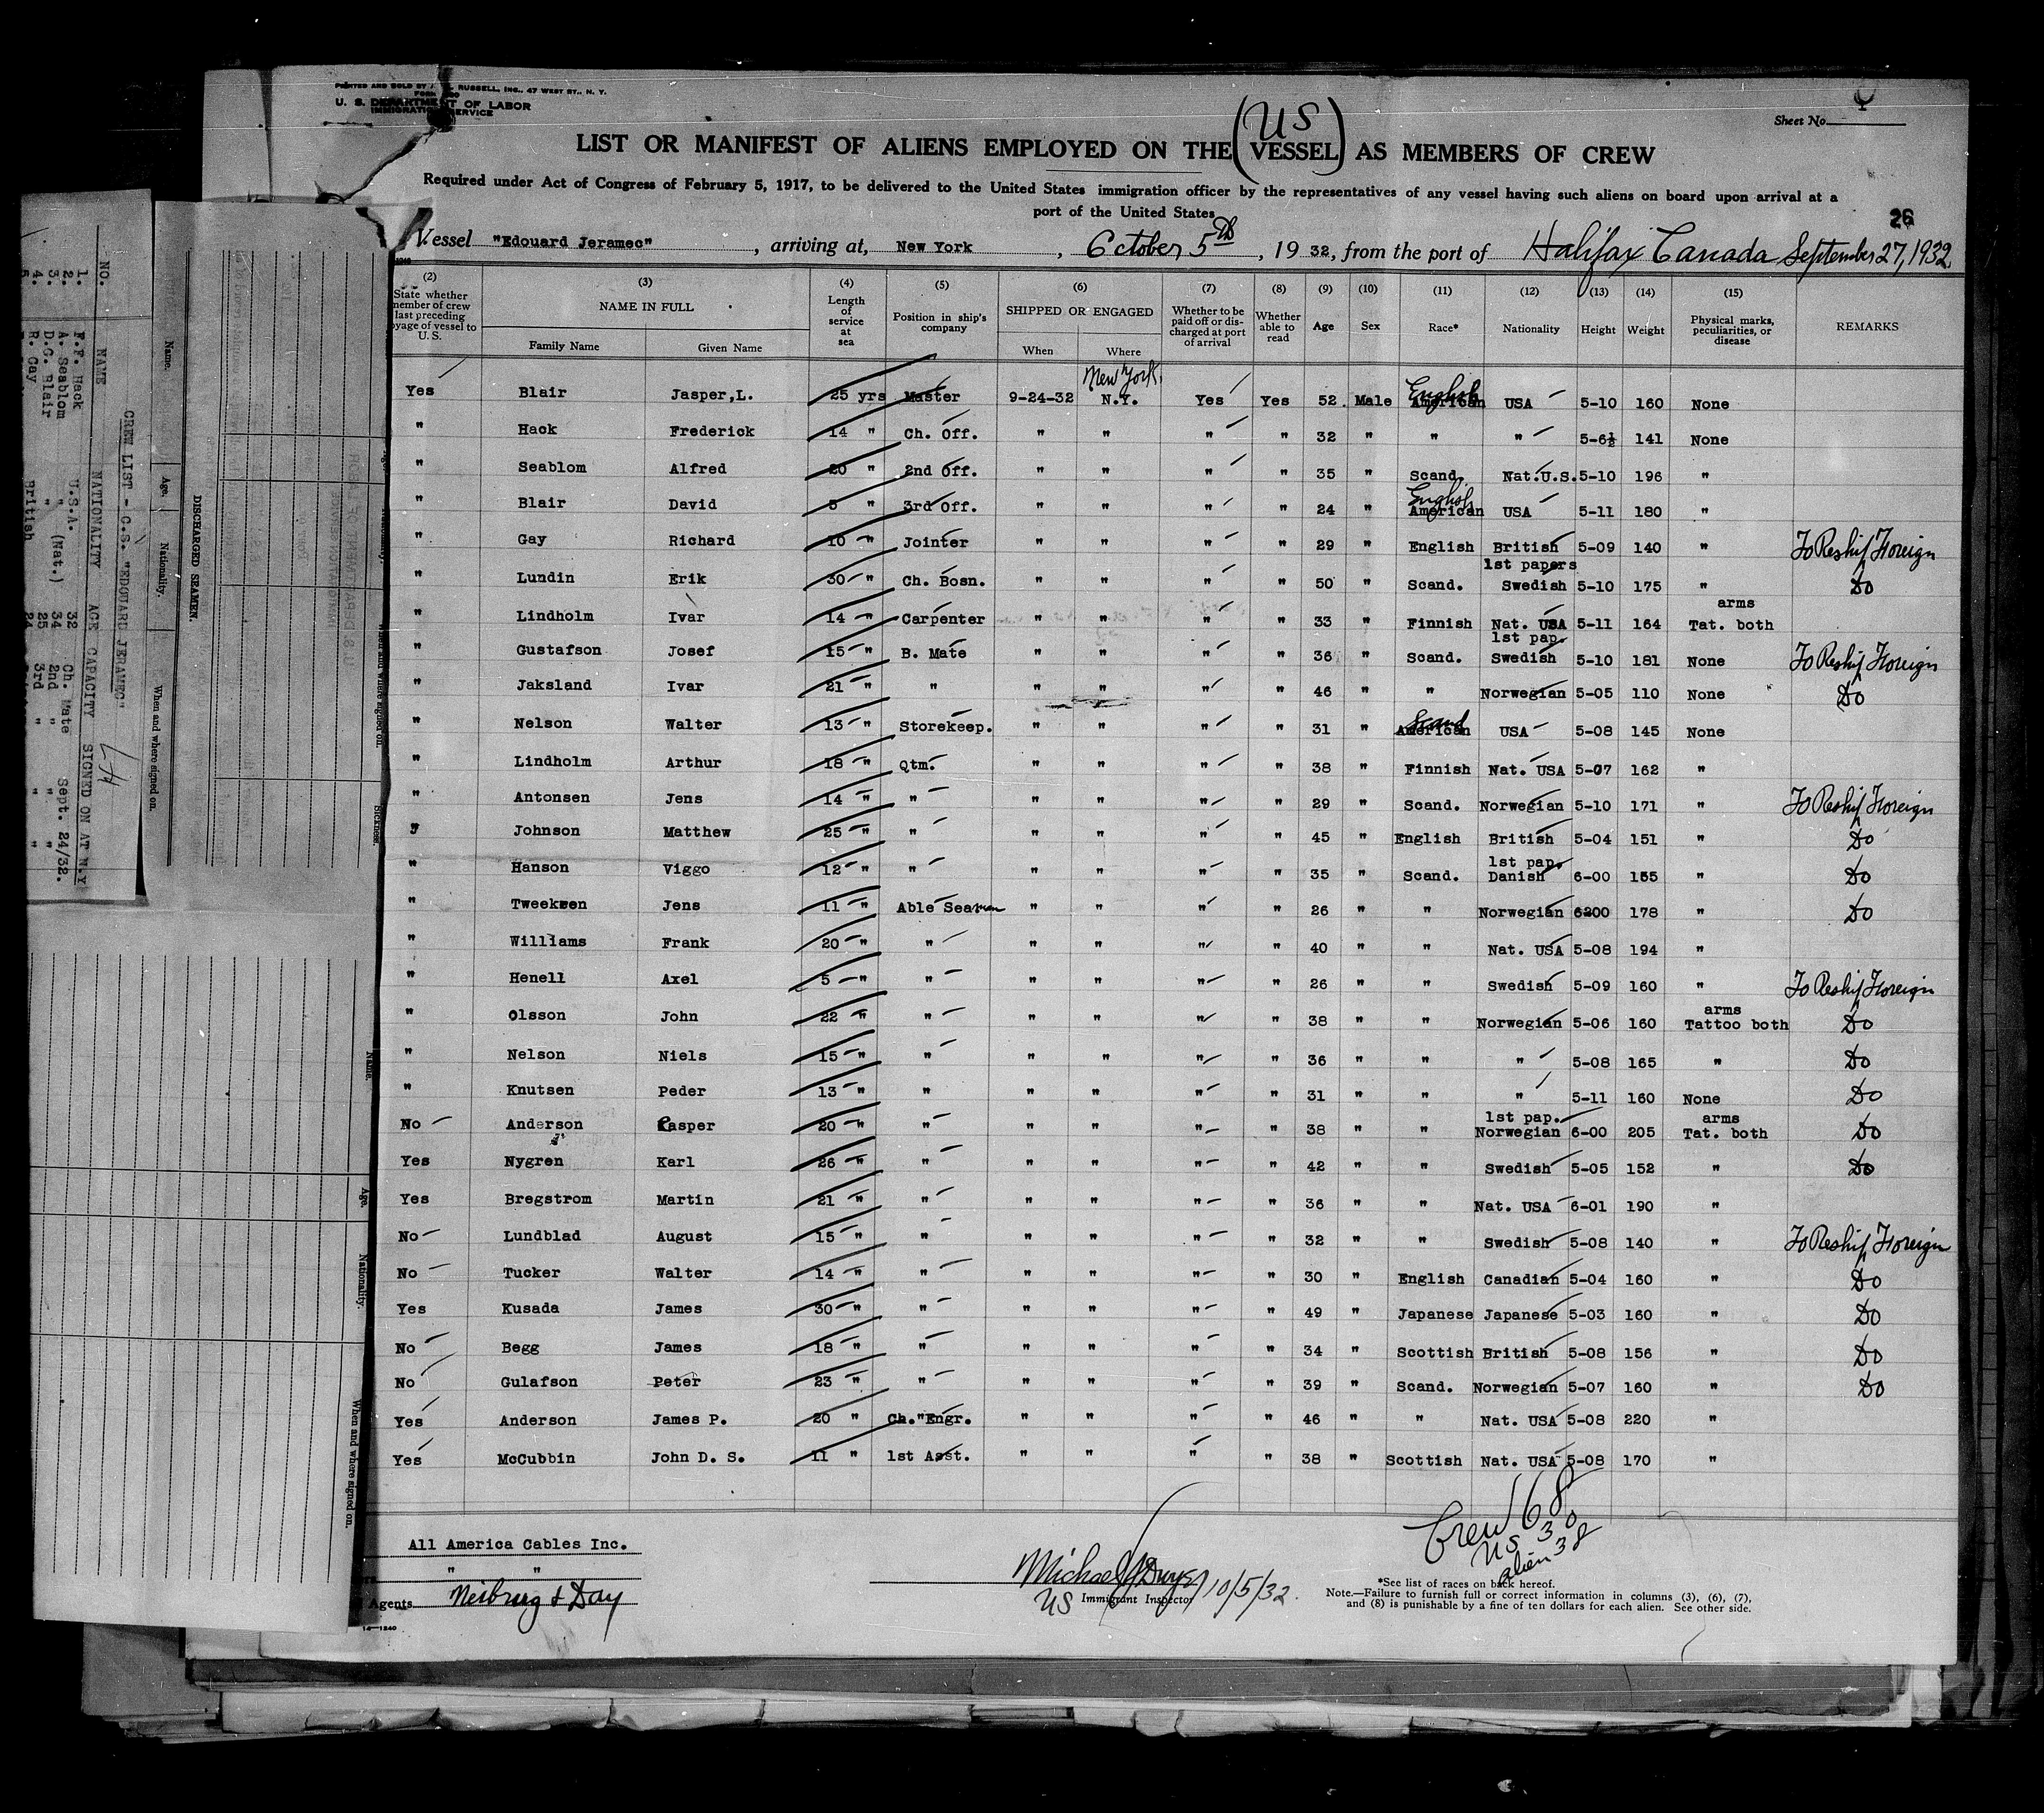 PRINTED AND SOLD BY J. RUSSELL, INC., 47 WEST ST., N. Y.
U. S. DEPARTMENT OF LABOR
IMMIGRATION SERVICE
Sheet No.
(US)
LIST OR MANIFEST OF ALIENS EMPLOYED ON THE (VESSEL) AS MEMBERS OF CREW
Required under Act of Congress of February 5, 1917, to be delivered to the United States immigration officer by the representatives of any vessel having such aliens on board upon arrival at a
port of the United States
26
Vessel "Edouard Jeramec", arriving at, New York, October 5th, 1932, from the port of Halifax Canada September 27, 1932
(2) (3) (4) (5) (6) (7) (8) (9) (10) (11) (12) (13) (14) (15)
State whether member of crew last preceding voyage of vessel to U.S. NAME IN FULL Family Name Given Name Length of service at sea Position in ship's company SHIPPED OR ENGAGED When Where Whether to be paid off or discharged at port of arrival Whether able to read Age Sex Race* Nationality Height Weight Physical marks, peculiarities, or disease REMARKS
Yes Blair Jasper,L. 25 yrs Master 9-24-32 New York N.Y. Yes Yes 52 Male English American USA 5-10 160 None
" Hack Frederick 14 " Ch. Off. " " " " 32 " " " 5-6½ 141 None
" Seablom Alfred 20 " 2nd Off. " " " " 35 " Scand. Nat.U.S. 5-10 196 "
" Blair David 5 " 3rd Off. " " " " 24 " English American USA 5-11 180 "
" Gay Richard 10 " Jointer " " " " 29 " English British 5-09 140 " To Reship Foreign
" Lundin Erik 30 " Ch. Bosn. " " " " 50 " Scand. 1st papers Swedish 5-10 175 " Do
" Lindholm Ivar 14 " Carpenter " " " " 33 " Finnish Nat. USA 5-11 164 Tat. both arms
" Gustafson Josef 15 " B. Mate " " " " 36 " Scand. 1st pap. Swedish 5-10 181 None To Reship Foreign
" Jaksland Ivar 21 " " " " " " 46 " " Norwegian 5-05 110 None Do
" Nelson Walter 13 " Storekeep. " " " " 31 " Scand American USA 5-08 145 None
" Lindholm Arthur 18 " Qtm. " " " " 38 " Finnish Nat. USA 5-07 162 "
" Antonsen Jens 14 " " " " " " 29 " Scand. Norwegian 5-10 171 " To Reship Foreign
" Johnson Matthew 25 " " " " " " 45 " English British 5-04 151 " Do
" Hanson Viggo 12 " " " " " " 35 " Scand. 1st pap. Danish 6-00 155 " Do
" Tweeksen Jens 11 " Able Seaman " " " " 26 " " Norwegian 6200 178 " Do
" Williams Frank 20 " " " " " " 40 " " Nat. USA 5-08 194 "
" Henell Axel 5 " " " " " " 26 " " Swedish 5-09 160 " To Reship Foreign
" Olsson John 22 " " " " " " 38 " " Norwegian 5-06 160 Tattoo both arms Do
" Nelson Niels 15 " " " " " " 36 " " " 5-08 165 " Do
" Knutsen Peder 13 " " " " " " 31 " " " 5-11 160 None Do
No Anderson Casper 20 " " " " " " 38 " " 1st pap. Norwegian 6-00 205 Tat. both arms Do
Yes Nygren Karl 26 " " " " " " 42 " " Swedish 5-05 152 " Do
Yes Bregstrom Martin 21 " " " " " " 36 " " Nat. USA 6-01 190 "
No Lundblad August 15 " " " " " " 32 " " Swedish 5-08 140 " To Reship Foreign
No Tucker Walter 14 " " " " " " 30 " English Canadian 5-04 160 " Do
Yes Kusada James 30 " " " " " " 49 " Japanese Japanese 5-03 160 " Do
No Begg James 18 " " " " " " 34 " Scottish British 5-08 156 " Do
No Gulafson Peter 23 " " " " " " 39 " Scand. Norwegian 5-07 160 " Do
Yes Anderson James P. 20 " Ch. Engr. " " " " 46 " " Nat. USA 5-08 220 "
Yes McCubbin John D. S. 11 " 1st Asst. " " " " 38 " Scottish Nat. USA 5-08 170 "
Crew 68
US 30
alien 38
All America Cables Inc.
" "
Agents
10/5/32
US Immigrant Inspector
*See list of races on back hereof.
Note.—Failure to furnish full or correct information in columns (3), (6), (7),
and (8) is punishable by a fine of ten dollars for each alien. See other side.
14—1240
CREW LIST - C.S. "EDOUARD JERAMEC"
NO. NAME NATIONALITY AGE CAPACITY SIGNED ON AT N.Y
1. F.F. Hack U.S.A. 32 Ch. Mate Sept. 24/32.
2. A. Seablom " (Nat.) 34 2nd " "
3. D.G. Blair " 25 3rd " "
4. R. Gay British
5.
DISCHARGED SEAMEN.
Name. Age. Nationality. When and where signed on.
Name. Age. Nationality. When and where signed on.